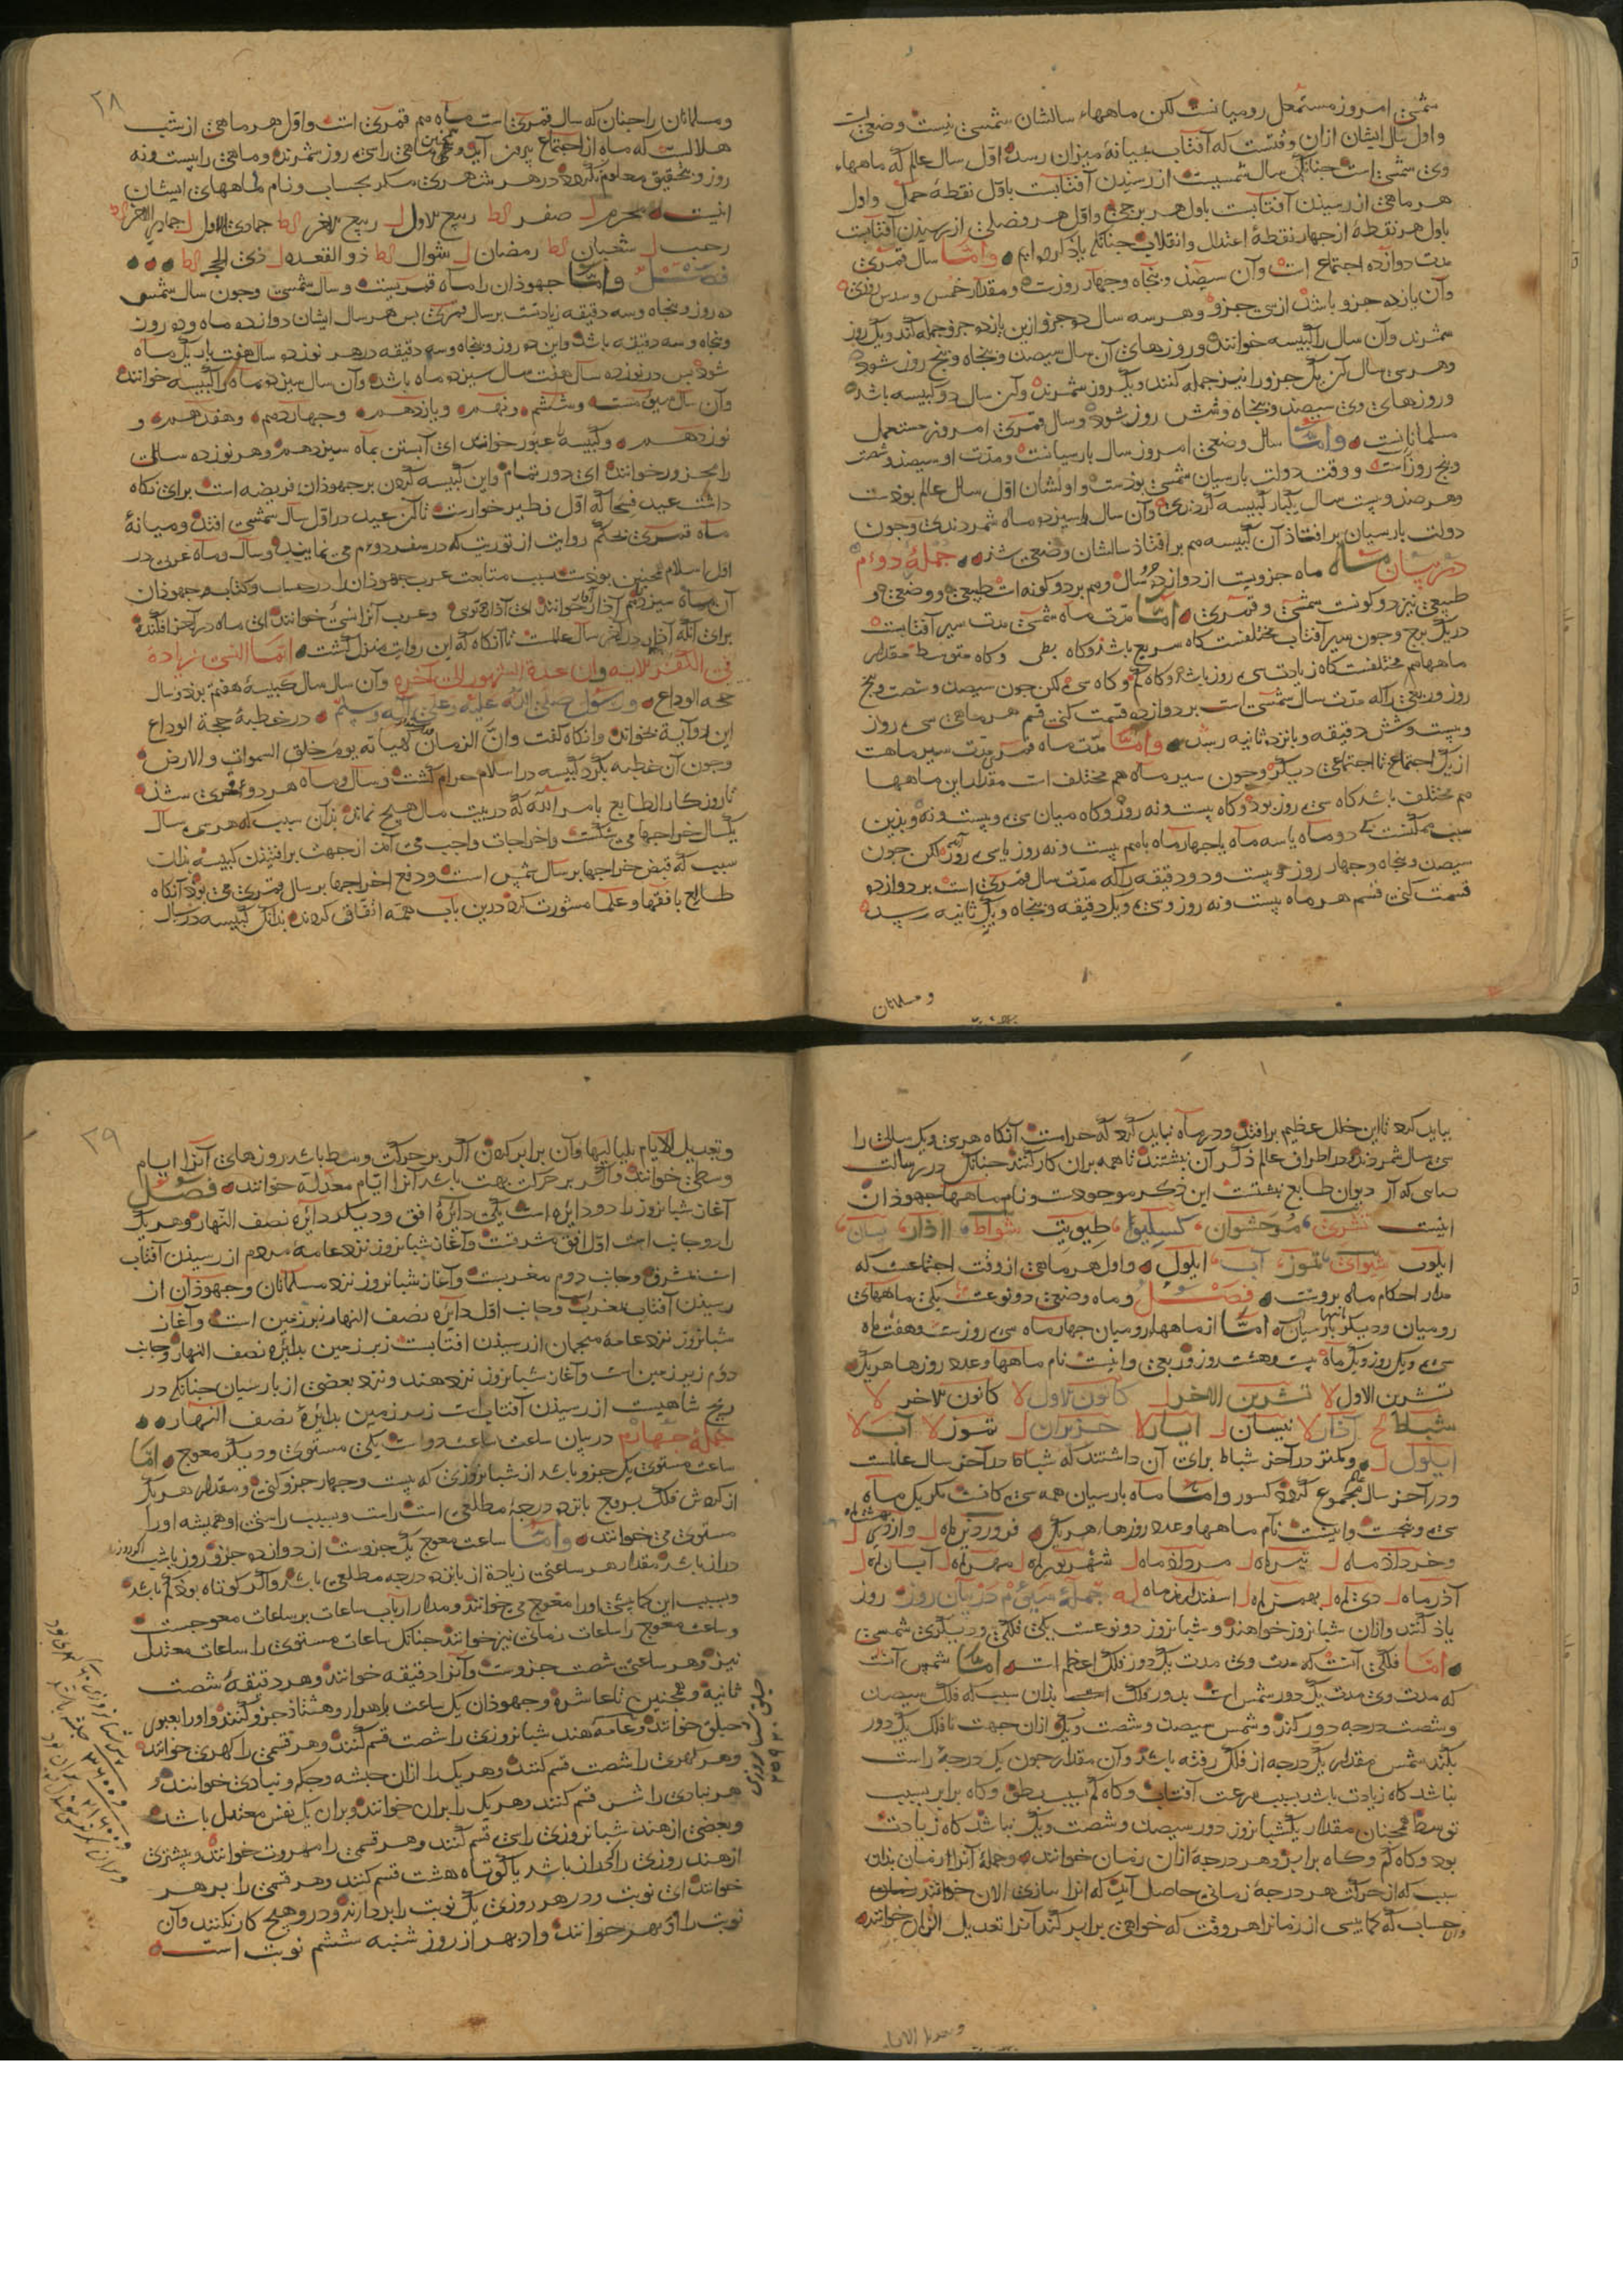 شمسی امروز مستعمل رومیانست لکن ماههاء سالشان شمسی نیست وضعی است
واول سال ایشان ازان وقتست که آفتاب بمیانهٔ میزان رسد اوّل سال عالم که ماههاء
وی شمسی است چنانک سال شمسیست از رسیدن آفتابست باوّل نقطهٔ حمل واول
هر ماهی از رسیدن آفتابست باول هر برجی واوّل هر فصلی از رسیدن آفتابست
باول هر نقطهٔ از چهار نقطهٔ اعتدال وانقلاب چنانک یاذ کرده ایم وامّا سال قمری
مدت دوازده اجتماع است وآن سیصذ وپنجاه وچهار روزست ومقدار خمس وسدس روزی
وآن یازده جزو باشذ از سی جزو وهر سه سال دو جزو ازین یازده جزو جمله کند ویک روز
شمرند وآن سال را کبیسه خوانند وروزهای آن سال سیصذ وپنجاه وپنج روز شود
وهر سی سال آن یک جزو را نیز جمله کنند ویک روز شمرند وآن سال دو کبیسه باشد
وروزهای وی سیصد وپنجاه وشش روز شود وسال قمری امروز مستعمل
مسلمانانست وامّا سال وضعی امروز سال پارسیانست ومدّت او سیصذ وشصت
وپنج روز است ووقت دولت پارسیان شمسی بودست واولشان اوّل سال عالم بودست
وهر صذ وبیست سال یکبار کبیسه کردندی وآن سال را سیزده ماه شمردندی وچون
دولت پارسیان برافتاذ آن کبیسه هم برافتاذ سالشان وضعی شذ جملهٔ دوءم
در بیان ماه ماه جزویست از دوازده جزو سال وهم بر دو کونه است طبیعی ووضعی و
طبیعی نیز دو کونست شمسی وقمری امّا مدّت ماه شمسی مدت سیر آفتابست
در یک برج وچون سیر آفتاب مختلفست کاه سریع باشذ وکاه بطی وکاه متوسط مقدار
ماهها هم مختلفست کاه زیادت سی روز باشد وکاه کم وکاه سی لکن چون سیصد وشصت وپنج
روز وربعی را که مدّت سال شمسی است بر دوازده قسمت کنی قسم هر ماهی سی روز
وبیست وشش دقیقه وپانزده ثانیه رسد وامّا مدّت ماه قمری مدّت سیر ماهست
از یک اجتماع تا اجتماعی دیکر وچون سیر ماه هم مختلف است مقدار این ماهها
هم مختلف باشد کاه سی روز بود وکاه بیست ونه روز وکاه میان سی وبیست ونه وبدین
سبب ممکنست که دو ماه یا سه ماه یا چهار ماه باهم بیست ونه روز یا سی روز لکن چون
سیصذ وپنجاه وچهار روز وبیست ودو دقیقه را که مدّت سال قمری است بر دوازده
قسمت کنی قسم هر ماه بیست ونه روز وسی ویک دقیقه وپنجاه ویک ثانیه رسد
ومسلمانان
۲۸
ومسلمانان را چنان که سال قمری است ماه هم قمری است واوّل هر ماهی از شب
هلالست که ماه از اجتماع بیرون آید وهمچنین ماهی را سی روز شمرند وماهی را بیست ونه
روز وبتحقیق معلوم نکردد در هر شهری مکر بحساب ونام ماههای ایشان
اینست محرم ل صفر کط ربیع الاول ل ربیع الاخر کط جمادی الاول ل جمادی الاخر کط
رجب ل شعبان کط رمضان ل شوال کط ذو القعده ل ذی الحجه کط
فصل وامّا جهوذان را ماه قمریست وسال شمسی وچون سال شمسی
ده روز وپنجاه وسه دقیقه زیادتست بر سال قمری پس هر سال ایشان دوازده ماه وده روز
وپنجاه وسه دقیقه باشد واین ده روز وپنجاه وسه دقیقه در هر نوزده سال هفت بار یک ماه
شود پس در نوزده سال هفت سال سیزده ماه باشد وآن سال سیزده ماه را کبیسه خوانند
وآن سال سوم است وششم ونهم ویازدهم وچهاردهم وهفدهم و
نوزدهم وکبیسه عبور خوانند ای آبستن بماه سیزدهم وهر نوزده سالی
را محزور خوانند ای دور تمام واین کبیسه کردن بر جهوذان فریضه است برای نکاه
داشت عید فسحا که اوّل فطیر خوارست تا آن عید در اوّل سال شمسی افتد ومیانهٔ
ماه قمری بحکم روایت از توریت که در سفر دوم می نمایند وسال وماه عرب در
اوّل اسلام همچنین بودست بسبب متابعت عرب جهوذان را در حساب وکتاب وجهوذان
آن ماه سیزدهم آذار خوانند ای آذار دوم وعرب آنرا نسیٔ خوانند ای ماه در آخر افکنده
برای آنکه آذار در آخر سال عالمست تا آنکاه که این روایت منزل کشت انّما النسئ زیادة
فی الکفر الایه وان عدة الشهور الی آخره وآن سال سال کبیسهٔ هفتم بوذ وسال
حجه الوداع ورسول صلی الله علیه وعلی آله وسلّم در خطبهٔ حجة الوداع
این دو آیة بخواند وانکاه کفت وانّ الزمان کهیاته یوم خلق السموات والارض
وچون آن خطبه بکرد کبیسه در اسلام حرام کشت وسال وماه هر دو قمری شد
تا روزکار الطایع بامر الله که در بیت مال هیچ نماند بدان سبب که هر سی سال
یکسال خراجها می شکست واخراجات واجب می آمد از جهت برافتاذن کبیسه بذان
سبب که قبض خراجها بر سال شمسی است ودفع اخراجها بر سال قمری می بوذ آنکاه
طایع با فقها وعلما مشورت کرد درین باب همه اتّفاق کردند بدانک کبیسه در سال
بباید کرد تا این خلل عظیم برافتد ودر ماه نباید کرد که حرامست آنکاه هر سی ویک سالی را
سی سال شمردند ودر اطراف عالم ذکر آن بنشتند تا همه بران کار کنند چنانک در رسالت
صابی که از دیوان طایع نبشتست این ذکر موجودست ونام ماههاء جهوذان
اینست تشری مرحشوان کسلیوا طیویت شواط آاذار نیسان
ایلوب شیوان تموز آب ایلول واول هر ماهی از وقت اجتماعست که
مدار احکام ماه برویست فصل وماه وضعی دو نوعست یکی ماههای
رومیان ودیکر پارسیان امّا از ماههاء رومیان چهار ماه سی روز ست وهفت ماه
سی ویک روز ویک ماه بیست وهشت روز وربعی واینست نام ماهها وعدد روزها هر یک
تشرین الاول لا تشرین الاخر ل کانون الاول لا کانون الاخر لا
شباط کح آذار لا نیسان ل ایار لا حزیران ل تموز لا آب لا
ایلول ل وکمتر در آخر شباط برای آن داشتند که شباط در آخر سال عالمست
ودر آخر سال مجموع کردد کسور وامّا ماه پارسیان همه سی کانست مکر یک ماه
سی وپنجست واینست نام ماهها وعدد روزها هر یک فروردین ماه ل
وخرداذ ماه ل تیر ماه ل مرداذ ماه ل شهریور ماه ل مهر ماه ل آبان ماه ل
آذر ماه ل دی ماه ل بهمن ماه ل اسفندارمذ ماه له جملهٔ سیوم در بیان روز روز
یاذ کنند وازان شبانروز خواهند وشبانروز دو نوعست یکی فلکی ودیکری شمسی
امّا فلکی آنست که مدت وی مدت یک دور فلک اعظم است وامّا شمسی آنست
که مدت وی مدت یک دور شمس است بدور فلک بذان سبب که فلک سیصذ
وشصت درجه دور کند وشمس سیصذ وشصت ویک ازان جهت تا فلک یک دور
بکند شمس مقدار یک درجه از فلک رفته باشذ وآن مقدار چون یک درجهٔ راست
نباشد کاه زیادت باشد بسبب سرعت آفتاب وکاه کم بسبب بطؤ وکاه برابر بسبب
توسط همچنان مقدار یکشبانروز دور سیصذ وشصت ویک نباشد کاه زیادت
بود وکاه کم وکاه برابر وهر درجهٔ ازان زمان خوانند وجملهٔ آنرا ازمان بذان
سبب که از حرکت هر درجهٔ زمانی حاصل آید که انرا سازی الان خوانند
حساب که کمابیش از زمانرا هر وقت که خواهی برابر کند آنرا تعدیل الازمان خوانند
وتعدیل الایام
۲۹
وتعدیل الایام بلیالیها وآن برابر کردن اکر بر حرکت وسط باشد روزهای آنرا ایام
وسطی خوانند واکر بر حرکات بهت باشد آنرا ایّام معدّله خوانند فصل
آغاز شبانروز را دو دایره است یکی دائرهٔ افق ودیکر دایرهٔ نصف النّهار وهر یک
را دو جانب است اوّل افق مشرقست وآغاز شبانروز نزد عامهٔ مردم از رسیدن آفتاب
است بمشرق وجانب دوم مغربست وآغاز شبانروز نزد مسلمانان وجهوذان از
رسیدن آفتاب بمغرب وجانب اوّل دایرهٔ نصف النهار زبر زمین است وآغاز
شبانروز نزد عامهٔ منجمان از رسیدن افتابست زبر زمین بدائرهٔ نصف النهار وجانب
دوم زیر زمین است وآغاز شبانروز نزد هند ونزد بعضی از پارسیان چنانک در
زیج شاهیست از رسیدن آفتاب است زیر زمین بدائرهٔ نصف النهار
جملهٔ چهارم در بیان ساعت ساعت دو است یکی مستوی ودیکر معوج امّا
ساعت مستوی یک جزو باشد از شبانروزی که بیست وچهار جزو کنی ومقدار هر یک
از کردش فلک بروج پانزده درجهٔ مطلعی است راست وبسبب راستی او همیشه اورا
مستوی می خوانند وامّا ساعت معوج یک جزوست از دوازده جزو روز یا شب اکر روز
دراز باشد مقدار هر ساعتی زیادة از پانزده درجه مطلعی باشد واکر کوتاه بود کم باشد
وبسبب این کمابیشی اورا معوج می خوانند ومدار ارباب ساعات بر ساعات معوجست
وساعت معوج را ساعات زمانی نیز خوانند چنانک ساعات مستوی را ساعات معتدل
نیز وهر ساعتی شصت جزوست وآنرا دقیقه خوانند وهر دقیقهٔ شصت
ثانیه وهمچنین تا عاشره وجهوذان یک ساعت را هزار وهشتاذ جزو کنند واورا بعبور
حیلق خوانند وعامهٔ هند شبانروزی را شصت قسم کنند وهر قسمی را کهری خوانند
وهر کهری را شصت قسم کنند وهر یک را ازان جبشه وجکه ونباذی خوانند و
هر نباذی را شش قسم کنند وهر یک را بران خوانند وبران یک نفس معتدل باشد
وبعضی از هند شبانروزی را سی قسم کنند وهر قسمی را مهروت خوانند وبیشتری
از هند روزی را اکر دراز باشد یا کوتاه هشت قسم کنند وهر قسمی را برهر
خوانند ای نوبت ودر هر روزی یک نوبت را بردارند ودرو هیچ کار نکنند وآن
نوبت را اذبهر خوانند واذبهر از روز شنبه ششم نوبت است